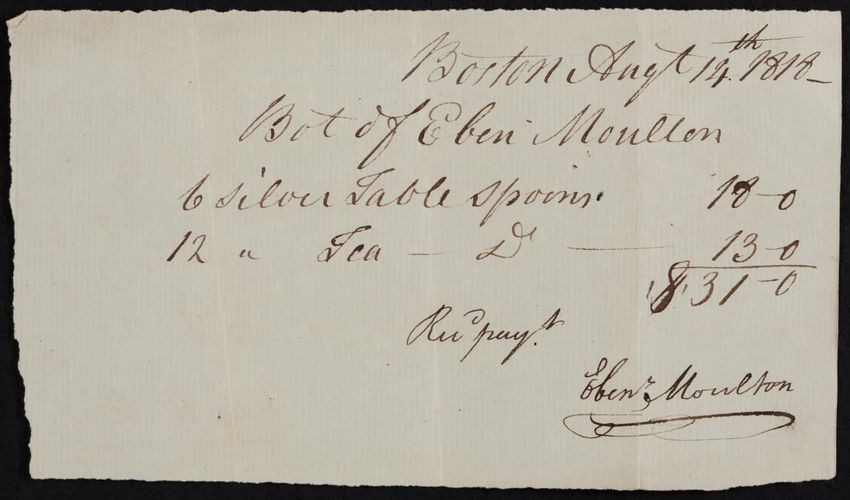 Boston Augt 14th 1818—
Bot of Eben Moulton
6 silver Table spoons 18-0
12 " Tea — Do —— 13-0
$31-0
Recd payt.
Ebenr Moulton